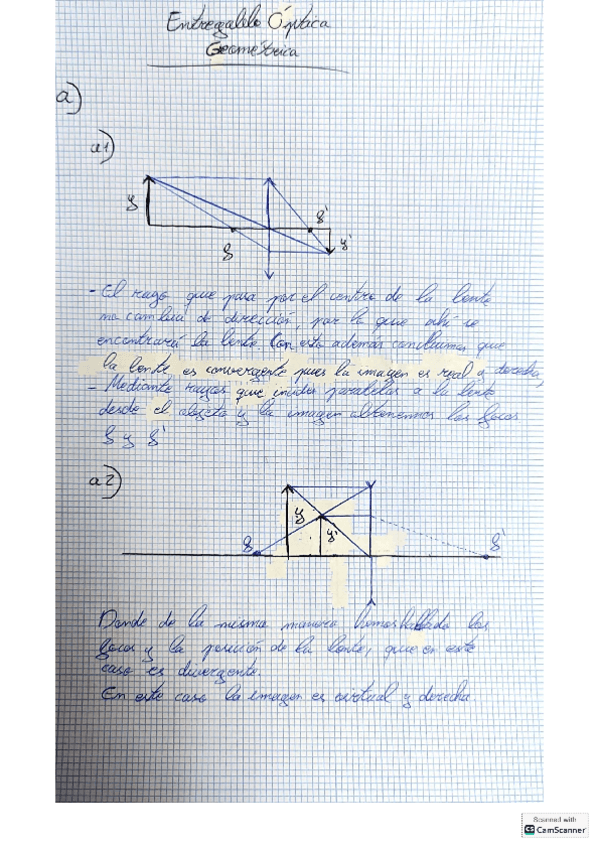 Entregable Óptica
Geométrica
a)
a1)
y
f
f'
y'
- El rayo que pasa por el centro de la lente
no cambia de dirección, por lo que ahí se
encontrará la lente. Con esto además concluimos que
la lente es convergente pues la imagen es real y derecha,
- Mediante rayos que inciden paralelos a la lente
desde el objeto y la imagen obtenemos los focos
f y f'
a2)
y
y'
f
f'
Donde de la misma manera hemos hallado los
focos y la posición de la lente, que en este
caso es divergente.
En este caso la imagen es virtual y derecha.
Scanned with
CS CamScanner